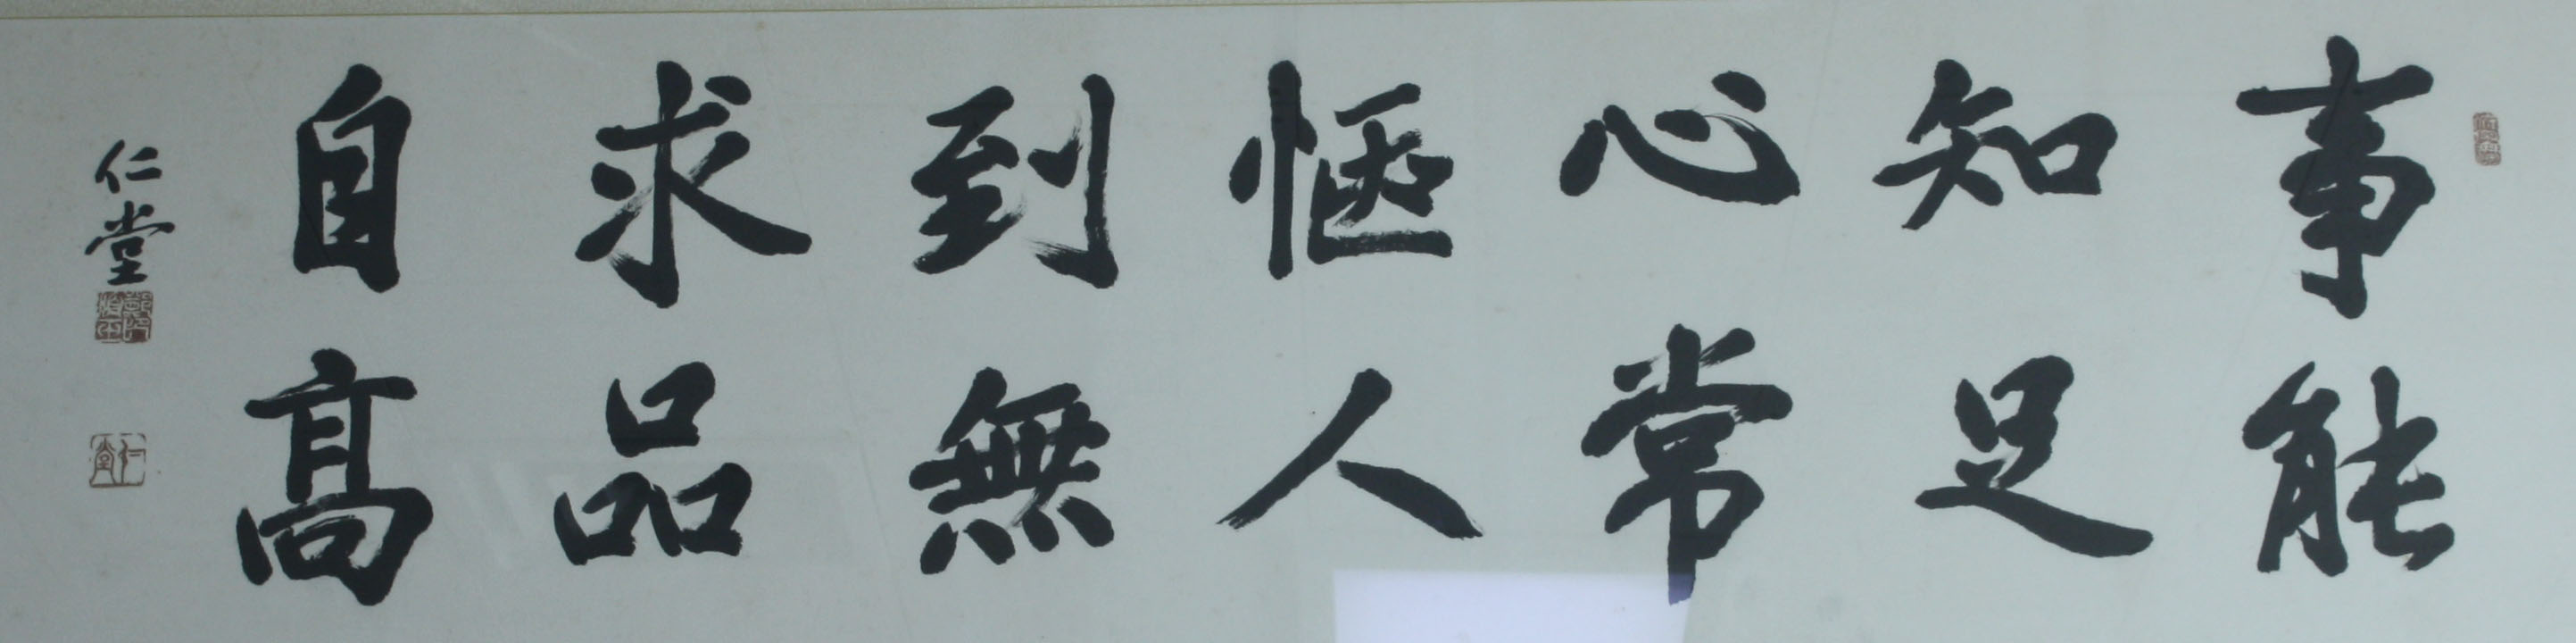 事能
知足
心常
惬人
到無
求品
自高
仁堂
仁堂